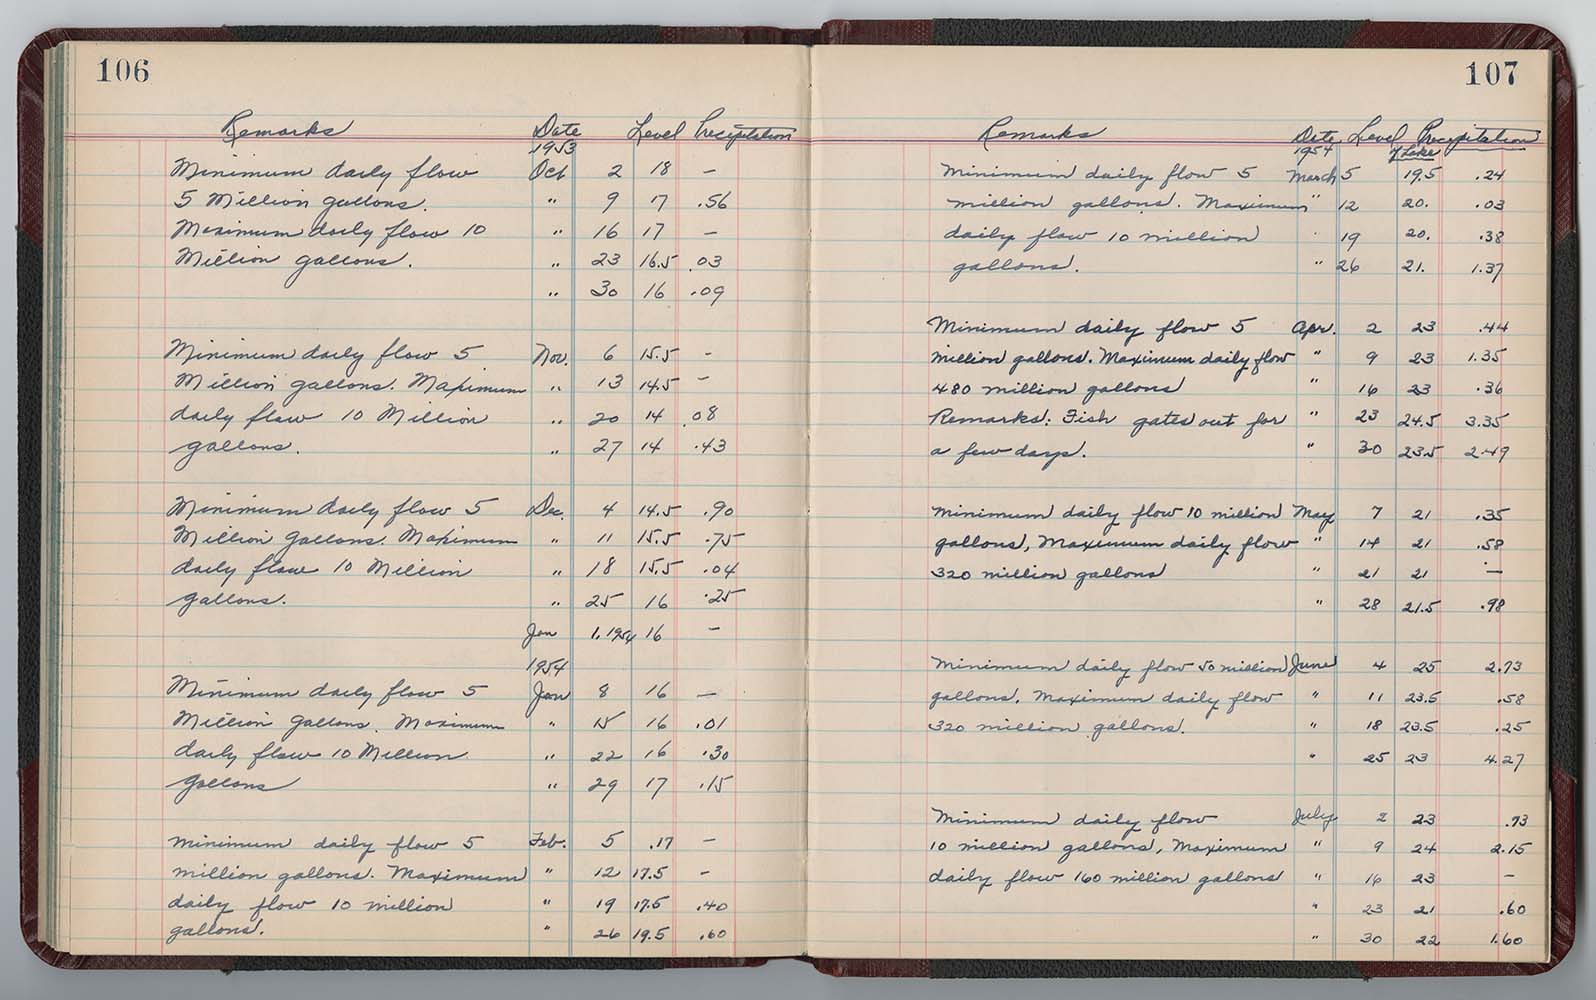 106
Remarks Date Level Precipitation
1953
Minimum daily flow Oct 2 18 –
5 Million gallons. " 9 17 .56
Maximum daily flow 10 " 16 17 –
Million gallons. " 23 16.5 .03
" 30 16 .09
Minimum daily flow 5 Nov. 6 15.5 –
Million gallons. Maximum " 13 14.5 –
daily flow 10 Million " 20 14 .08
gallons. " 27 14 .43
Minimum daily flow 5 Dec. 4 14.5 .90
Million Gallons. Maximum " 11 15.5 .75
daily flow 10 Million " 18 15.5 .04
gallons. " 25 16 .25
Jan 1, 1954 16 –
1954
Minimum daily flow 5 Jan 8 16 –
Million Gallons. Maximum " 15 16 .01
daily flow 10 Million " 22 16 .30
gallons " 29 17 .15
minimum daily flow 5 Feb. 5 .17 –
million gallons. Maximum " 12 17.5 –
daily flow 10 million " 19 17.5 .40
gallons. " 26 19.5 .60
107
Remarks Date Level Precipitation
1954 of Lake
Minimum daily flow 5 March 5 19.5 .24
million gallons. Maximum " 12 20. .03
daily flow 10 million " 19 20. .38
gallons. " 26 21. 1.37
Minimum daily flow 5 Apr. 2 23 .44
million gallons. Maximum daily flow " 9 23 1.35
480 million gallons " 16 23 .36
Remarks: Fish gates out for " 23 24.5 3.35
a few days. " 30 23.5 2.49
Minimum daily flow 10 million May 7 21 .35
gallons, Maximum daily flow " 14 21 .58
320 million gallons " 21 21 –
" 28 21.5 .98
Minimum daily flow 50 million June 4 25 2.73
gallons. Maximum daily flow " 11 23.5 .58
320 million gallons. " 18 23.5 .25
" 25 23 4.27
Minimum daily flow July 2 23 .73
10 million gallons, Maximum " 9 24 2.15
daily flow 160 million gallons " 16 23 –
" 23 21 .60
" 30 22 1.60